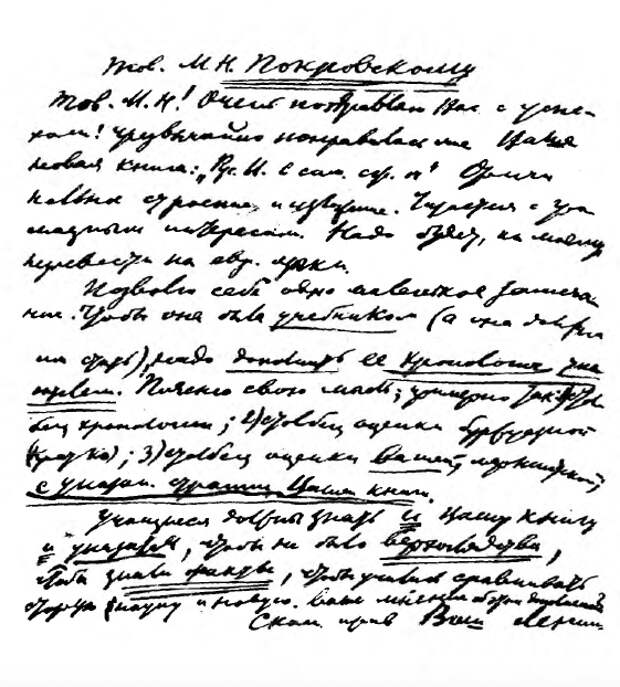 Тов. М. Н. Покровскому
Тов. М. Н.! Очень поздравляю Вас с успе-
хом! Чрезвычайно понравилась мне Ваша
новая книга: „Рус. И. в сам. сж. оч." Ориги
нальное строение и изложение. Читается с гро
мадным интересом. Надо будет, по-моему
перевести на евр. языки.
Позволю себе одно маленькое замеча-
ние. Чтобы она была учебником (а она должна
им стать), надо дополнить ее хронологич. ука
зателем. Поясню свою мысль; примерно так: 1) стол
бец хронологии; 2) столбец оценки буржуазной
(кратко); 3) столбец оценки Вашей, марксистской;
с указан. страниц Вашей книги.
Учащиеся должны знать и Вашу книгу
и указатель, чтобы не было верхоглядства,
чтобы знали факты, чтобы учились сравнивать
старую науку и новую. Ваше мнение об этом дополнении?
С ком. прив. Ваш Ленин